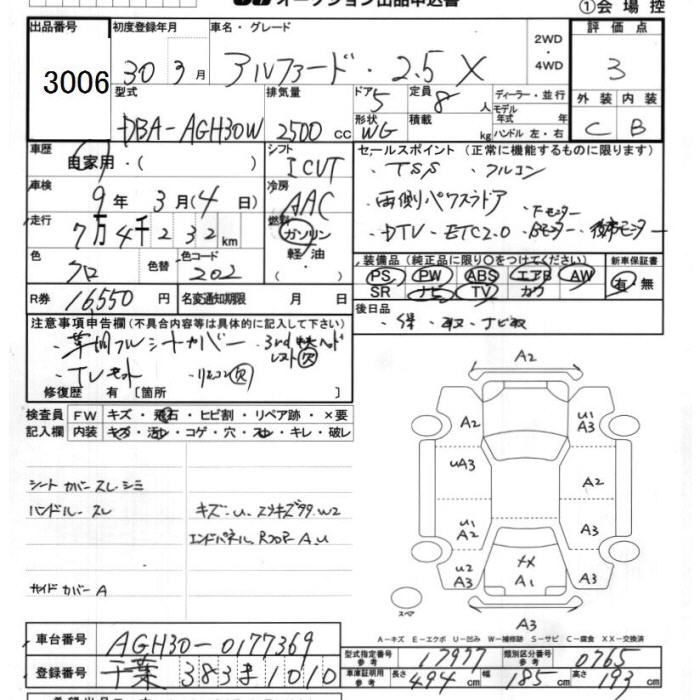 オークション出品申込書 ①会場控
出品番号 初度登録年月 車名・グレード 2WD・4WD 評価点
3006 30 3月 アルファード・2.5 X 3
型式 排気量 ドア 5 定員 8人 ディーラー・並行 モデル年式 年 外装 内装
DBA-AGH30W 2500cc 形状 WG 積載 kg ハンドル 左・右 C B
車歴 自家用・( ) シフト ICVT セールスポイント(正常に機能するものに限ります)
・TSS ・フルコン
車検 9年 3月(4日) 冷房 AAC 両側パワスラドア
走行 7万4千232km 燃料 ガソリン・軽油・( ) ・DTV ・ETC2.0
色 クロ 色替 色コード 202 装備品(純正品に限り○をつけてください) 新車保証書
PS PW ABS エアB AW 有・無
SR ナビ TV カワ
R券 16550円 名変通知期限 月 日 後日品
注意事項申告欄(不具合内容等は具体的に記入して下さい) ・保・取・ナビ取
・革調フルシートカバー ・3rd
・TVモセット ・リモコン欠
修復歴 有 [箇所 ]
検査員 FW キズ・飛石・ヒビ割・リペア跡・×要
記入欄 内装 キズ・汚レ・コゲ・穴・スレ・キレ・破レ
シートカバースレ・シミ
ハンドル・スレ キズ・U・スリキズ多々・W2
エンドパネル、RフロアA、U
サイドカバーA
A2
A2 U1 A3
UA3 A2
U1 A2 A3
U2 A3 XX A1 A3
スペア
A3
A-キズ E-エクボ U-凹み W-補修跡 S-サビ C-腐食 XX-交換済
車台番号 AGH30-0177369 型式指定番号 参考 17977 類別区分番号 参考 0765
登録番号 千葉 383 ま 1010 車庫証明用 参考 長さ 494cm 幅 185cm 高さ 193cm